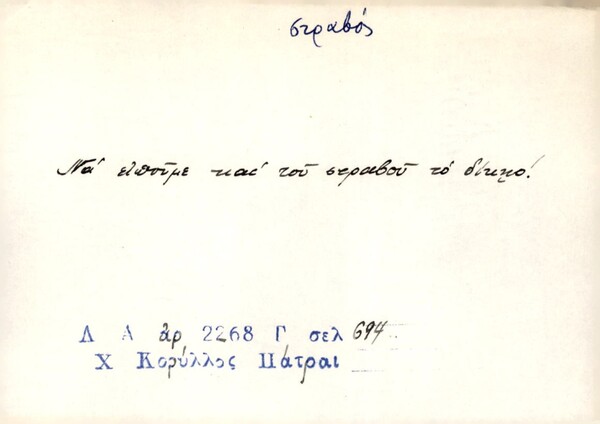 στραβός
Νά εἰποῦμε καί τοῦ στραβοῦ τό δίκηο!
Λ Α ἀρ 2268 Γ σελ 694
Χ Κορύλλος Πάτραι